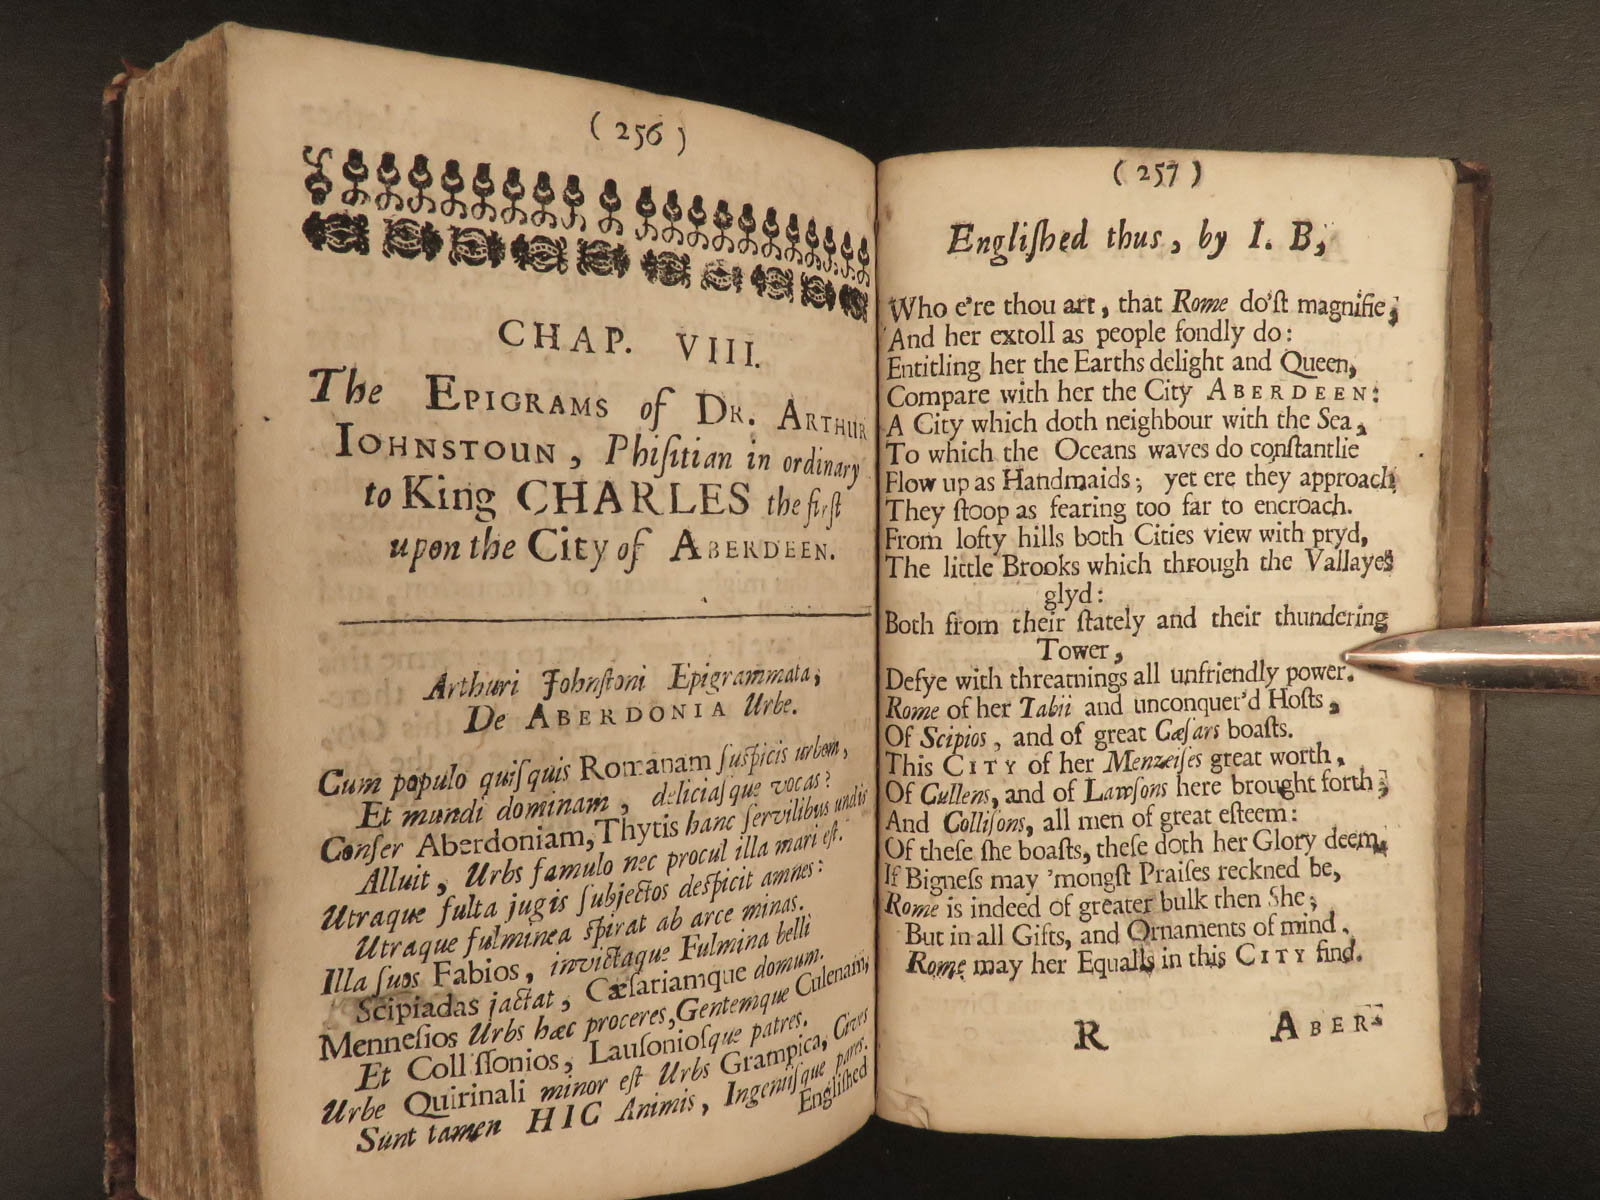 ( 256 )
CHAP. VIII.
The EPIGRAMS of DR. ARTHUR
IOHNSTOUN, Phiſitian in ordinary
to King CHARLES the firſt
upon the City of ABERDEEN.
Arthuri Johnſtoni Epigrammata,
De ABERDONIA Urbe.
Cum populo quiſquis Romanam ſuſpicis urbem,
Et mundi dominam, deliciaſque vocas?
Conſer Aberdoniam, Thytis hanc ſervilibus undis
Alluit, Urbs famulo nec procul illa mari eſt.
Utraque fulta jugis ſubjectos deſpicit amnes:
Utraque fulminea ſpirat ab arce minas.
Illa ſuos Fabios, invictaque Fulmina belli
Scipiadas jactat, Cæſariamque domum.
Menneſios Urbs hæc proceres, Gentemque Culenam,
Et Colliſſonios, Lauſonioſque patres.
Urbe Quirinali minor eſt Urbs Grampica, Cives
Sunt tamen HIC Animis, Ingeniiſque pares.
Engliſhed
( 257 )
Engliſhed thus, by I. B,
Who e're thou art, that Rome do'ſt magnifie,
And her extoll as people fondly do:
Entitling her the Earths delight and Queen,
Compare with her the City ABERDEEN:
A City which doth neighbour with the Sea,
To which the Oceans waves do conſtantlie
Flow up as Handmaids; yet ere they approach,
They ſtoop as fearing too far to encroach.
From lofty hills both Cities view with pryd,
The little Brooks which through the Vallayes
glyd:
Both from their ſtately and their thundering
Tower,
Defye with threatnings all unfriendly power.
Rome of her Tabii and unconquer'd Hoſts,
Of Scipios, and of great Cæſars boaſts.
This CITY of her Menzeiſes great worth,
Of Cullens, and of Lawſons here brought forth;
And Colliſons, all men of great eſteem:
Of theſe ſhe boaſts, theſe doth her Glory deem,
If Bigneſs may 'mongſt Praiſes reckned be,
Rome is indeed of greater bulk then She;
But in all Gifts, and Ornaments of mind,
Rome may her Equalls in this CITY find.
R
ABER-